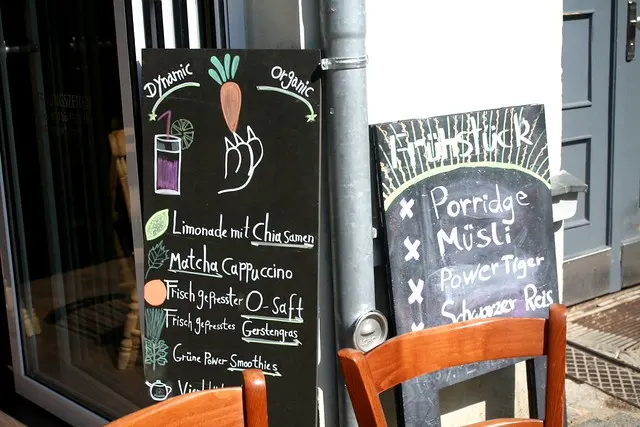 Dynamic
Organic
Limonade mit Chia Samen
Matcha Cappuccino
Frisch gepresster O-Saft
Frisch gepresstes Gerstengras
Grüne Power-Smoothies
Frühstück
Porridge
Müsli
Power Tiger
Schwarzer Reis